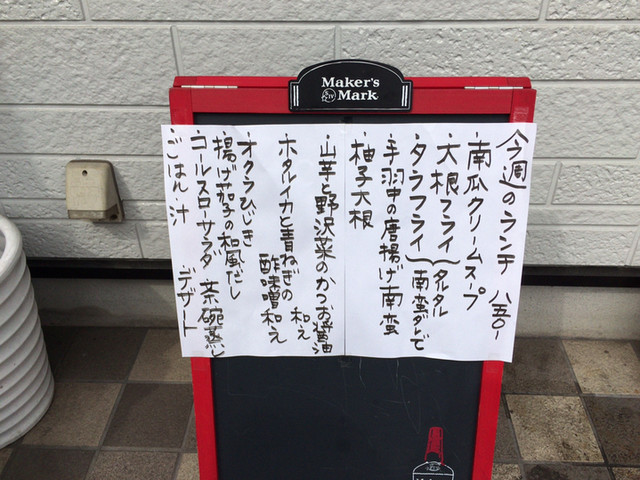 Maker's
Mark
今週のランチ 八五〇-
・南瓜クリームスープ
・大根フライ
・タラフライ
タルタル
南蛮ダレで
・手羽中の唐揚げ南蛮
・柚子大根
・山芋と野沢菜のかつお醤油
和え
・ホタルイカと青ねぎの
酢味噌和え
・オクラひじき
・揚げ茄子の和風だし
・コールスローサラダ 茶碗蒸し
・ごはん・汁 デザート